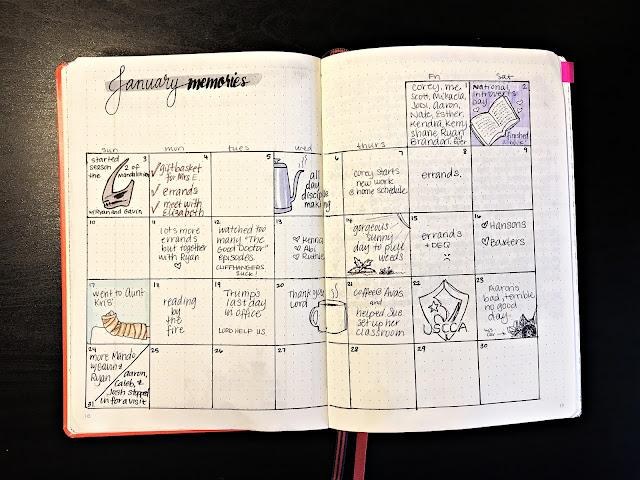 January memories
Fri
Sat
1
Corey, me,
Scott, Mikaela,
Jodi, Aaron,
Nate, Esther,
Kendra, Kerry
Shane Ryan
Brandon, and
2
National
Introverts
Day
finished
a book!
sun
mon
tues
wed
thurs
3
started
season 2 of
the Mandalorian
w/Ryan and Gavin
4
✓ giftbasket
for Mrs E.
✓ errands
✓ meet with
Elizabeth
5
6
all
day
disciple
making
7
corey starts
new work
@ home schedule
8
errands.
9
10
11
lots more
errands
but together
with Ryan
♡
12
watched too
many "The
Good Doctor"
episodes.
CLIFFHANGERS
SUCK!
13
♡ Kenna
♡ Abi
♡ Ruthie
14
gorgeous
sunny
day to pull
weeds
15
errands
+ DEQ
16
♡ Hansons
♡ Baxters
17
went to Aunt
Kris'
18
reading
by
the
fire
19
Trump's
last day
in office
LORD HELP US
20
Thank you
Lord
21
coffee@ Ava's
and
helped Sue
set up her
classroom
22
USCCA
23
Aaron's
bad, terrible
no good
day.
24
more Mando
w/Gavin &
Ryan
31
Aaron,
Caleb, &
Josh stopped
in for a visit
25
26
27
28
29
30